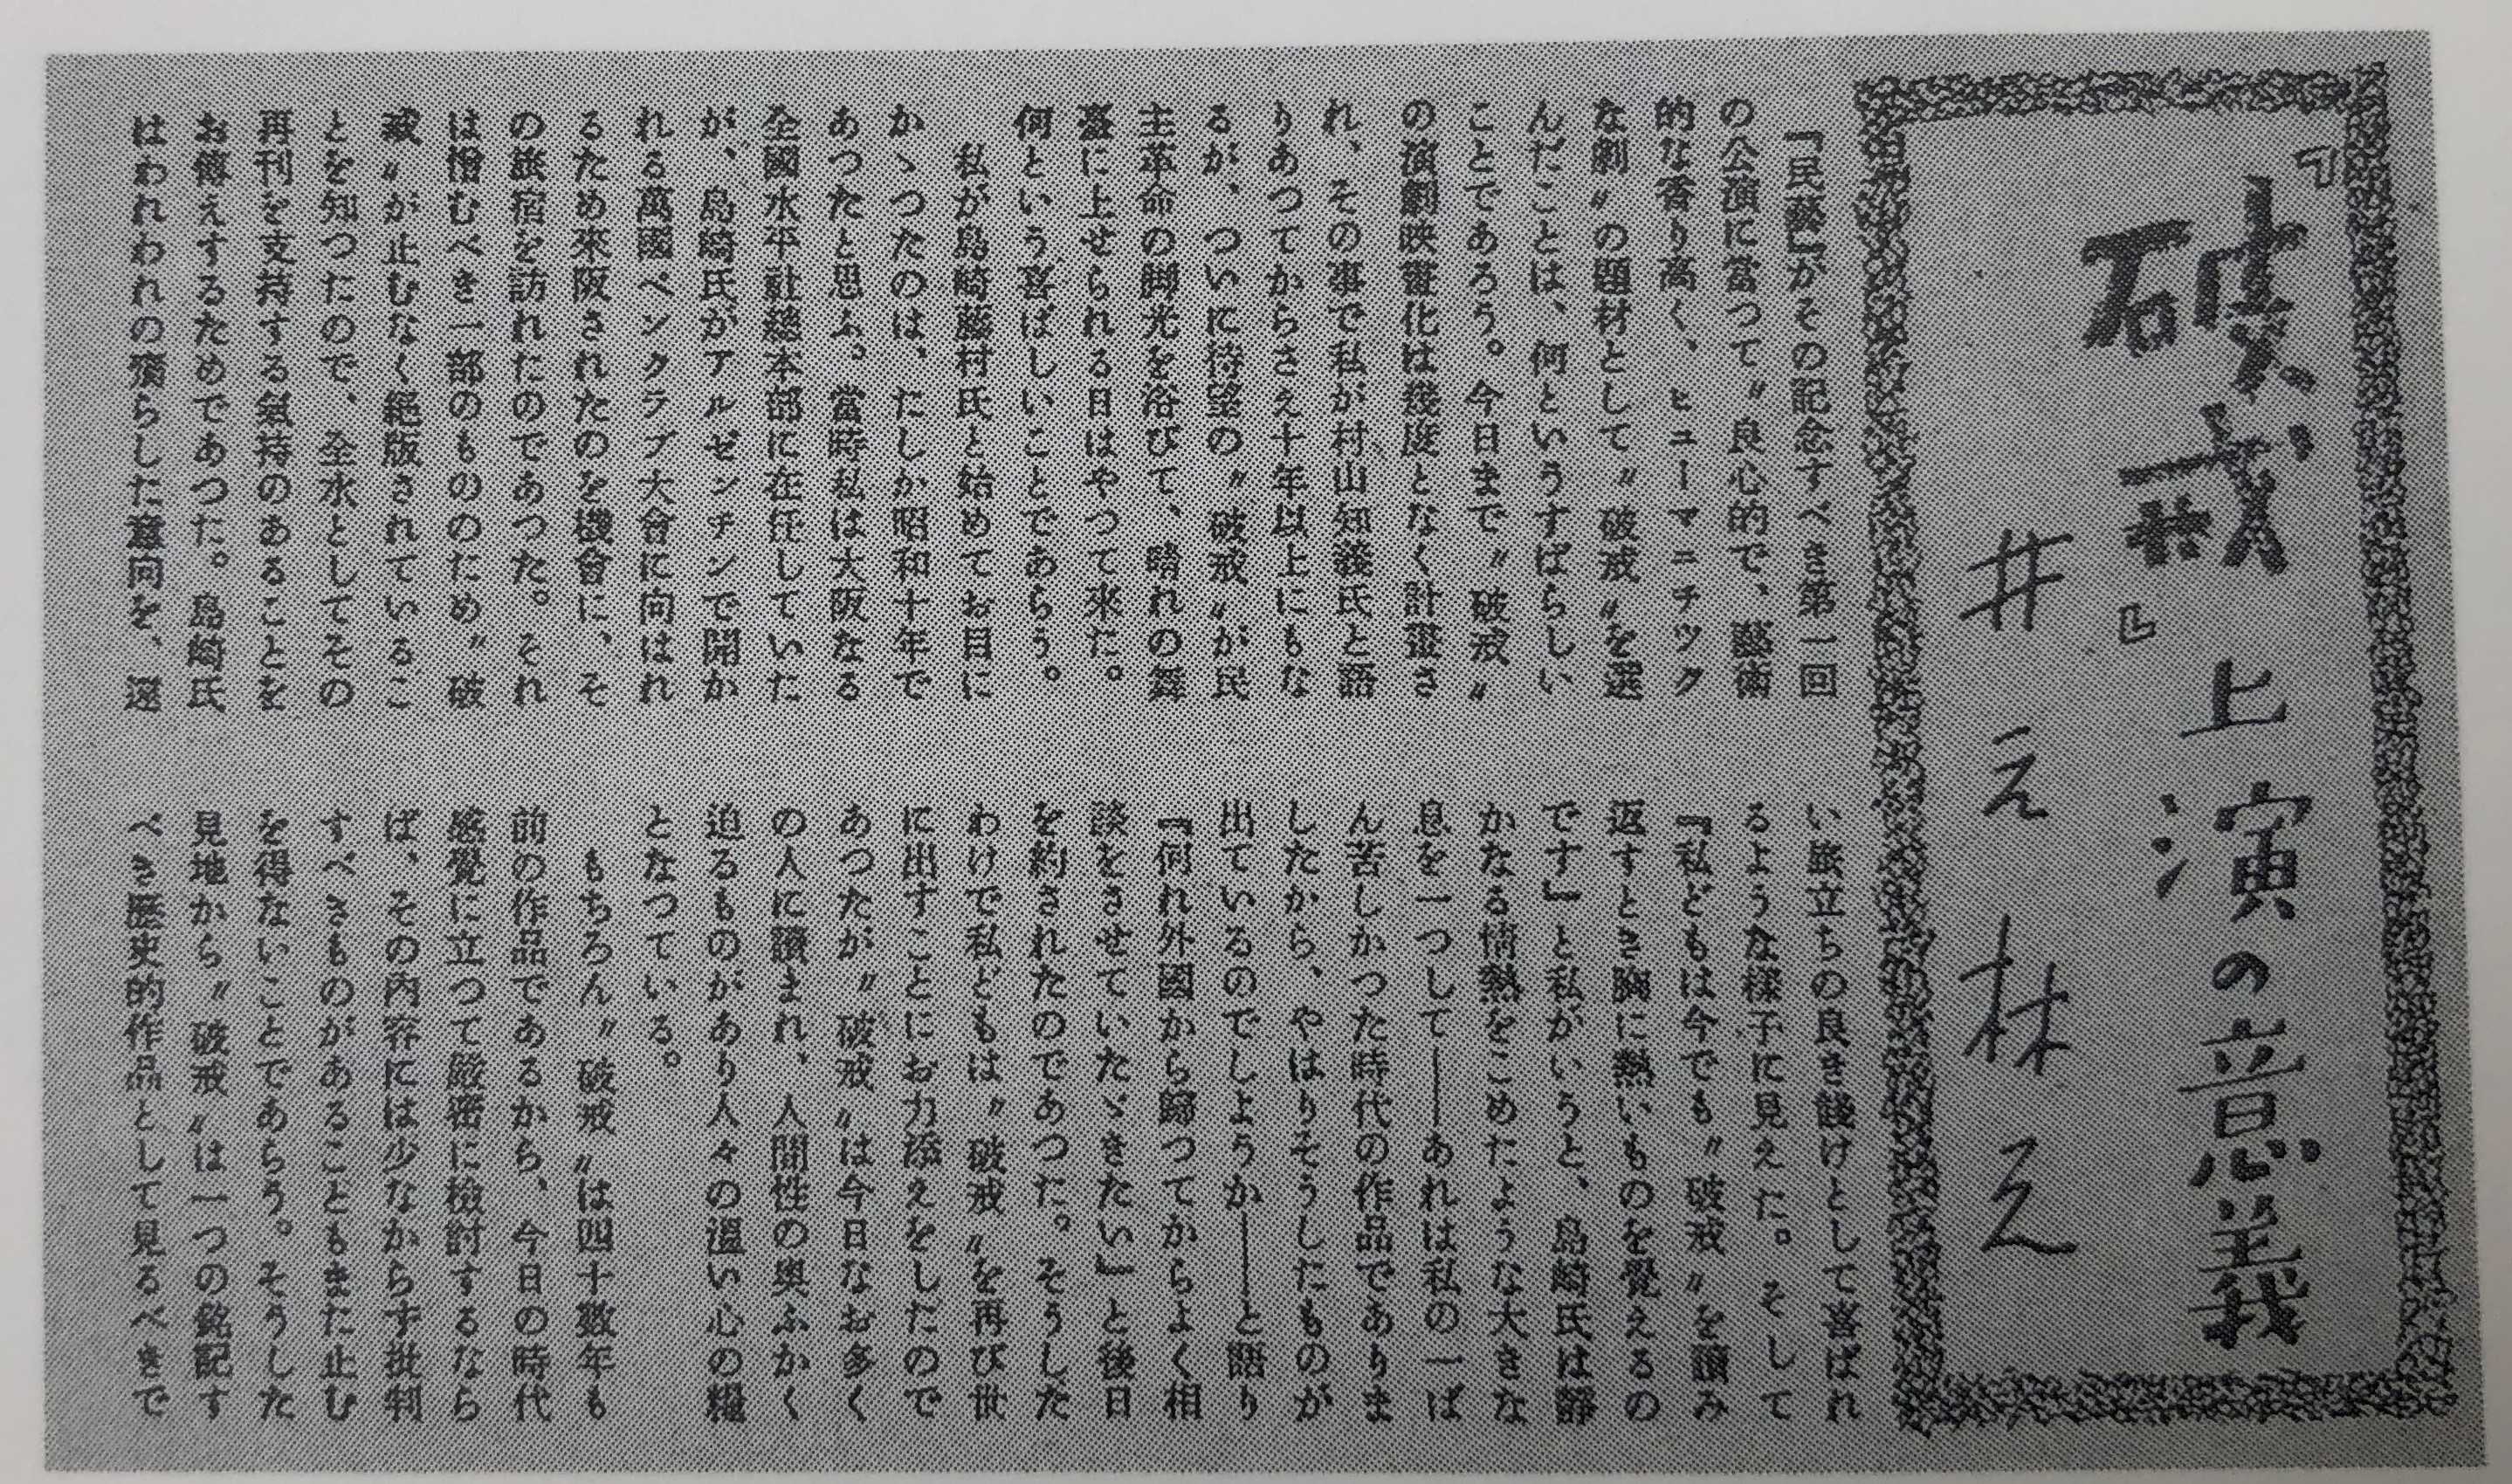 『破戒』上演の意義
井元林之
『民藝』がその記念すべき第一回
の公演に當つて〝良心的で、藝術
的な香り高く、ヒユーマニチック
な劇〟の題材として〝破戒〟を選
んだことは、何というすばらしい
ことであろう。今日まで〝破戒〟
の演劇映畫化は幾度となく計畫さ
れ、その事で私が村山知義氏と語
りあつてからさえ十年以上にもな
るが、ついに待望の〝破戒〟が民
主革命の脚光を浴びて、晴れの舞
臺に上せられる日はやつて來た。
何という喜ばしいことであらう。
私が島崎藤村氏と始めてお目に
かゝつたのは、たしか昭和十年で
あつたと思ふ。當時私は大阪なる
全國水平社總本部に在任していた
が、島崎氏がアルゼンチンで開か
れる萬國ペンクラブ大會に向はれ
るため來阪されたのを機會に、そ
の旅宿を訪れたのであつた。それ
は憎むべき一部のもののため〝破
戒〟が止むなく絶版されているこ
とを知つたので、全水としてその
再刊を支持する氣持のあることを
お傳えするためであつた。島崎氏
はわれわれの齎らした意向を、遠
い旅立ちの良き餞けとして喜ばれ
るような樣子に見えた。そして
『私どもは今でも〝破戒〟を讀み
返すとき胸に熱いものを覺えるの
です』と私がいうと、島崎氏は靜
かなる情熱をこめたような大きな
息を一つして――あれは私の一ば
ん苦しかつた時代の作品でありま
したから、やはりそうしたものが
出ているのでしようか――と語り
『何れ外國から歸つてからよく相
談をさせていたゞきたい』と後日
を約されたのであつた。そうした
わけで私どもは〝破戒〟を再び世
に出すことにお力添えをしたので
あつたが〝破戒〟は今日なお多く
の人に讀まれ、人間性の奥ふかく
迫るものがあり人々の溫い心の糧
となつている。
もちろん〝破戒〟は四十數年も
前の作品であるから、今日の時代
感覺に立つて嚴密に檢討するなら
ば、その內容には少なからず批判
すべきものがあることもまた止む
を得ないことであらう。そうした
見地から〝破戒〟は一つの銘記す
べき歷史的作品として見るべきで